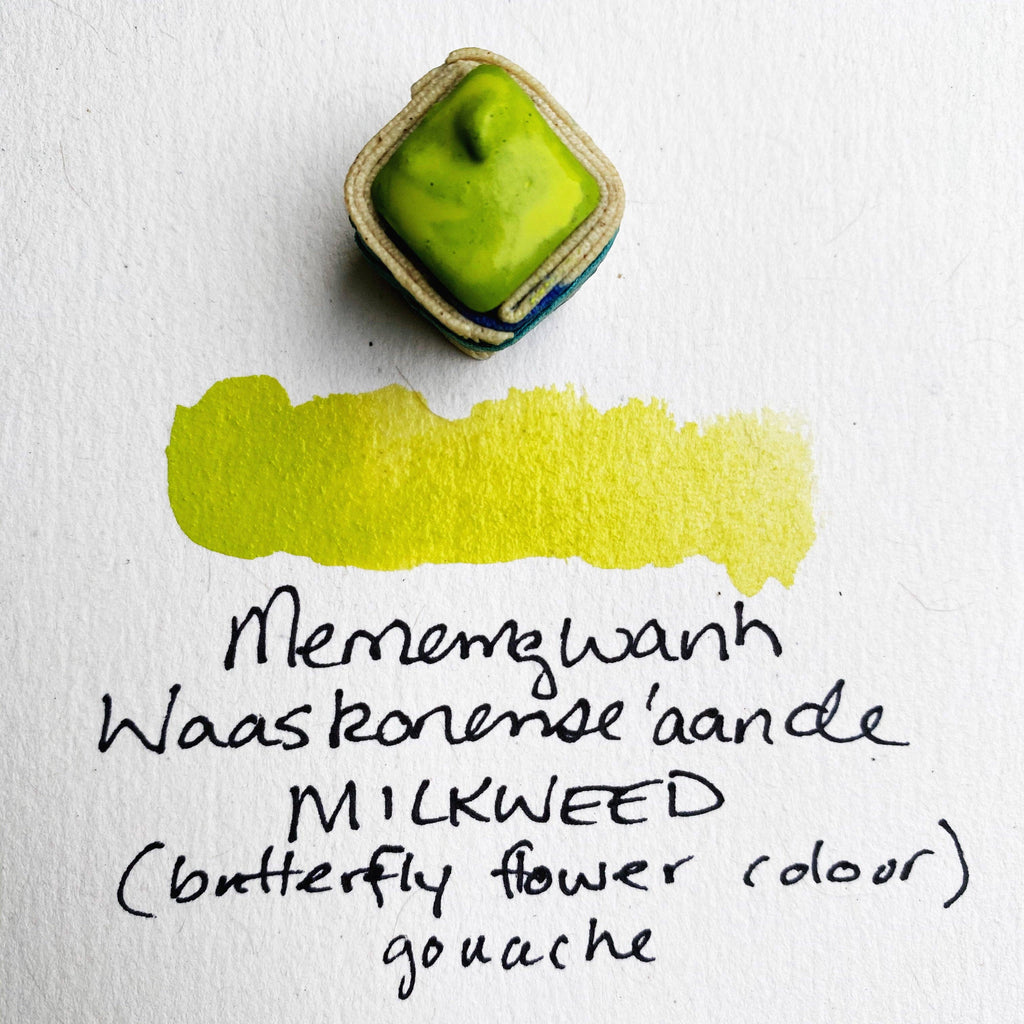 Mememgwanh
Waaskonense'aande
MILKWEED
(butterfly flower colour)
gouache